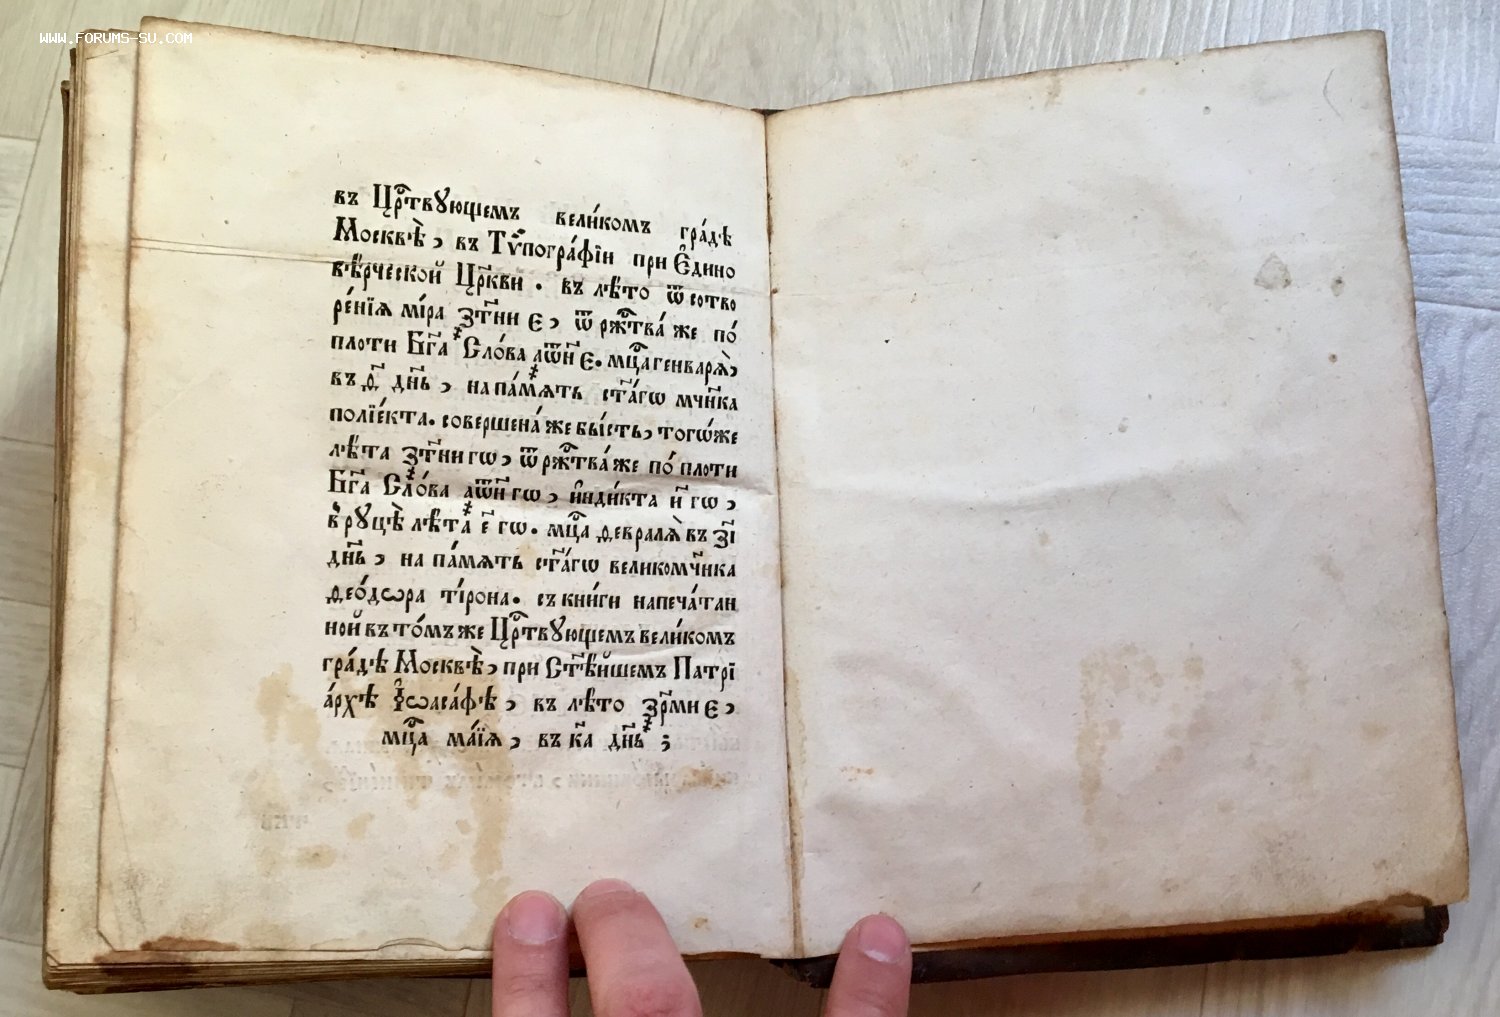 WWW.FORUMS-SU.COM
въ Црⷭ҇твꙋющемъ вели́комъ гра́дѣ
Москвѣ̀, въ Тѷпогра́фїи при Є҆дино
вѣ́рческой Цр҃кви. въ лѣ́то ѿ сотво
ре́нїѧ мі́ра ҂зт҃ни є, ѿ ржⷭ҇тва́ же по́
плоти Бг҃а Сло́ва ҂аѿ҃н є. мцⷭ҇а генварѧ̀,
въ ѳ҃ дн҃ь, на па́мѧть ст҃а́гѡ мч҃нка
полїе́кта. совершена́ же бы́сть, тогѡ́же
лѣ́та ҂зт҃ни гѡ, ѿ ржⷭ҇тва́ же по́ плоти
Бг҃а Сло́ва ҂аѿ҃н гѡ, и҆нди́кта и҃ гѡ,
в̾ рꙋцѣ̀ лѣ́та є҃ гѡ. мцⷭ҇а ѳевралѧ̀ въ з҃і
дн҃ь, на па́мѧть ст҃а́гѡ великомч҃нка
ѳео́дѡра ті́рона. съ кни́ги напеча́тан
ной въ то́мъ же Црⷭ҇твꙋющемъ вели́комъ
гра́дѣ Москвѣ̀, при Ст҃ѣ́йшемъ Патрї
а́рхѣ І҆ѡаса́фѣ, въ лѣ́то ҂зр҃ми є,
мцⷭ҇а ма́їѧ, въ к҃а дн҃ь;